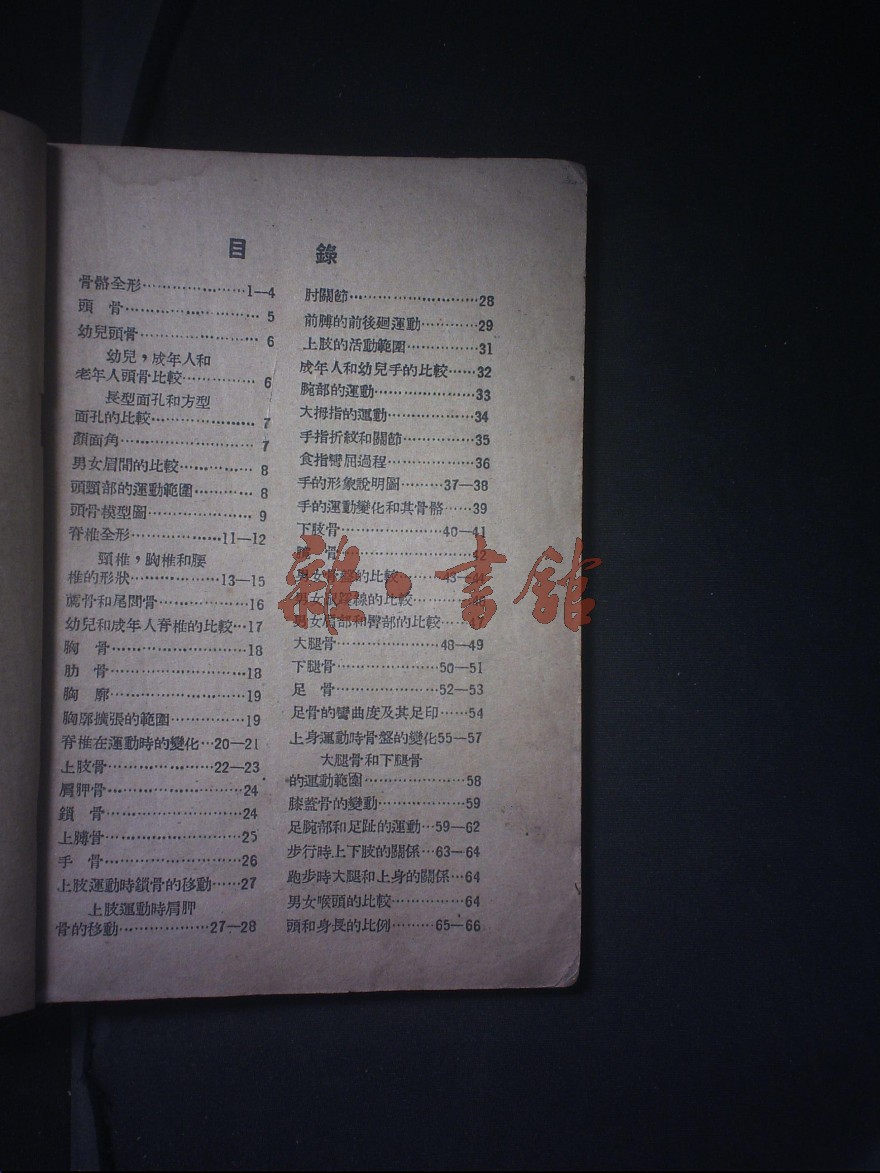 目 錄
骨骼全形…………………1—4
頭 骨……………………5
幼兒頭骨…………………6
幼兒，成年人和
老年人頭骨比較……………6
長型面孔和方型
面孔的比較…………………7
顏面角………………………7
男女眉間的比較……………8
頭頸部的運動範圍…………8
頭骨模型圖…………………9
脊椎全形………………11—12
頸椎，胸椎和腰
椎的形狀………………13—15
薦骨和尾閭骨………………16
幼兒和成年人脊椎的比較…17
胸 骨………………………18
肋 骨………………………18
胸 廓………………………19
胸廓擴張的範圍……………19
脊椎在運動時的變化…20—21
上肢骨…………………22—23
肩胛骨………………………24
鎖 骨………………………24
上膊骨………………………25
手 骨………………………26
上肢運動時鎖骨的移動……27
上肢運動時肩胛
骨的移動………………27—28
肘關節………………………28
前膊的前後廻運動…………29
上肢的活動範圍……………31
成年人和幼兒手的比較……32
腕部的運動…………………33
大拇指的運動………………34
手指折紋和關節……………35
食指彎屈過程………………36
手的形象說明圖………37—38
手的運動變化和其骨骼……39
下肢骨…………………40—41
骨………………………42
男女骨盤的比較………43—44
男女鼠蹊線的比較…………46
男女肩部和臀部的比較……47
大腿骨…………………48—49
下腿骨…………………50—51
足 骨…………………52—53
足骨的彎曲度及其足印……54
上身運動時骨盤的變化55—57
大腿骨和下腿骨
的運動範圍…………………58
膝蓋骨的變動………………59
足腕部和足趾的運動…59—62
步行時上下肢的關係…63—64
跑步時大腿和上身的關係…64
男女喉頭的比較……………64
頭和身長的比例………65—66
雜·書館